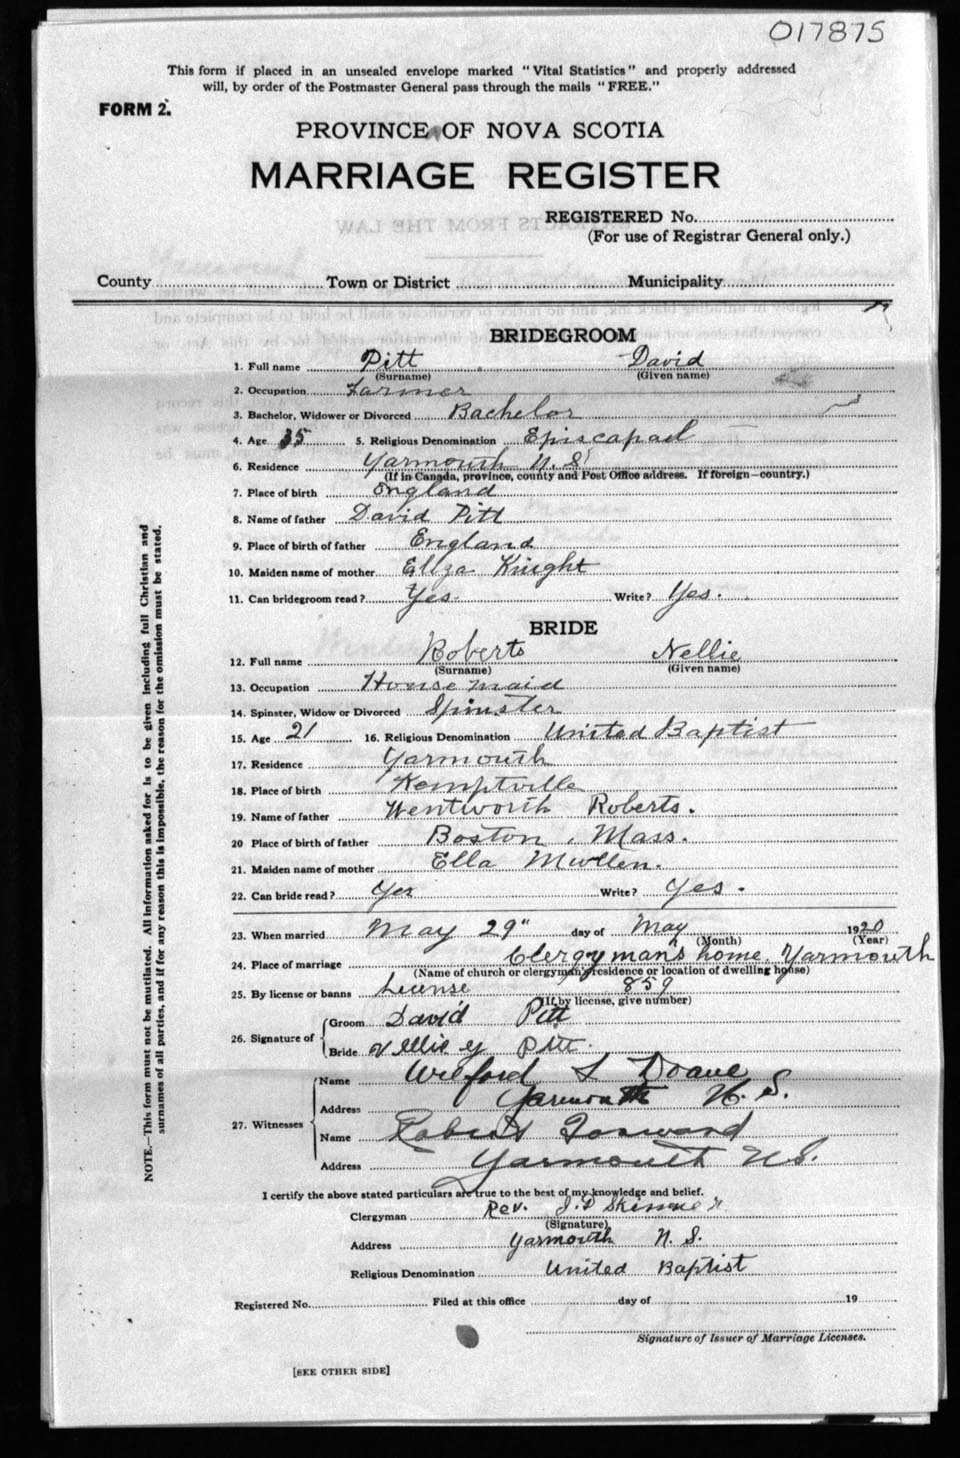 017875
This form if placed in an unsealed envelope marked "Vital Statistics" and properly addressed
will, by order of the Postmaster General pass through the mails "FREE."
FORM 2.
PROVINCE OF NOVA SCOTIA
MARRIAGE REGISTER
REGISTERED No.
(For use of Registrar General only.)
County Town or District Municipality
BRIDEGROOM
1. Full name Pitt David
(Surname) (Given name)
2. Occupation Farmer
3. Bachelor, Widower or Divorced Bachelor
4. Age 35 5. Religious Denomination Episcapal
6. Residence Yarmouth N.S
(If in Canada, province, county and Post Office address. If foreign—country.)
7. Place of birth England
8. Name of father David Pitt
9. Place of birth of father England
10. Maiden name of mother Eliza Knight
11. Can bridegroom read? Yes. Write? Yes.
BRIDE
12. Full name Roberts Nellie
(Surname) (Given name)
13. Occupation House maid
14. Spinster, Widow or Divorced Spinster
15. Age 21 16. Religious Denomination United Baptist
17. Residence Yarmouth
18. Place of birth Kemptville
19. Name of father Wentworth Roberts.
20 Place of birth of father Boston, Mass.
21. Maiden name of mother Ella
22. Can bride read? Yes Write? Yes.
23. When married May 29" day of May 1920
(Month) (Year)
24. Place of marriage Clergyman's home, Yarmouth
(Name of church or clergyman's residence or location of dwelling house)
25. By license or banns License 859
(If by license, give number)
26. Signature of Groom David Pitt
Bride Nellie Pitt
27. Witnesses
Name Wilford S Doane
Address Yarmouth N.S.
Name Robert Forward
Address Yarmouth N.S.
I certify the above stated particulars are true to the best of my knowledge and belief.
Clergyman Rev. J.D Skinner
(Signature)
Address Yarmouth N.S.
Religious Denomination United Baptist
Registered No. Filed at this office day of 19
Signature of Issuer of Marriage Licenses.
[SEE OTHER SIDE]
NOTE.—This form must not be mutilated. All information asked for is to be given including full Christian and
surnames of all parties, and if for any reason this is impossible, the reason for the omission must be stated.